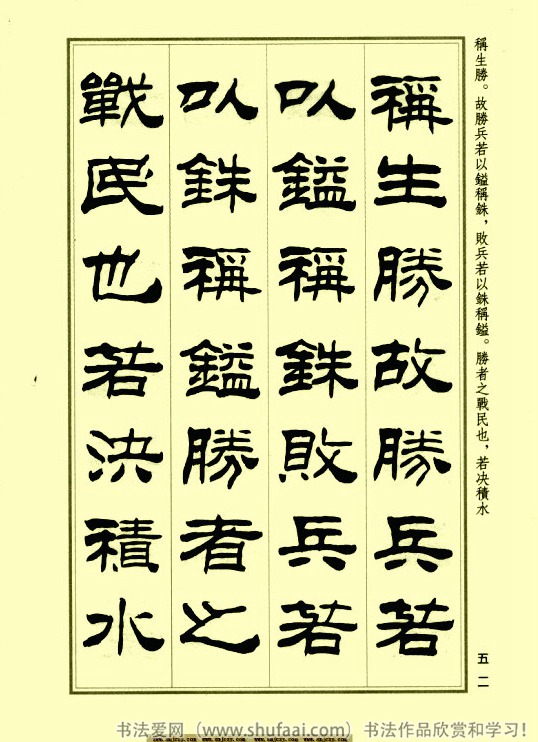 稱生勝。故勝兵若以鎰稱銖，敗兵若以銖稱鎰。勝者之戰民也，若决積水
稱生勝故勝兵若
以鎰稱銖敗兵若
以銖稱鎰勝者之
戰民也若決積水
五二
书法爱网（www.shufaai.com）书法作品欣赏和学习！